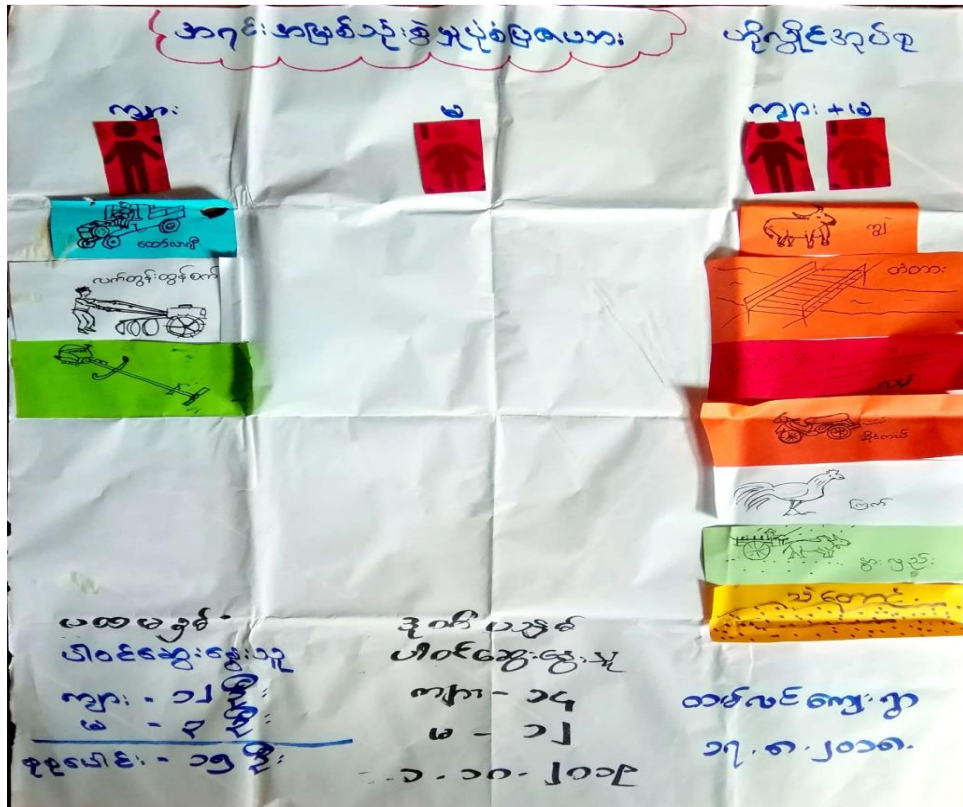 အရင်းအမြစ်သုံးစွဲမှုပုံစံပြဇယား
တိုလှိုင်အုပ်စု
ကျား
မ
ကျား + မ
ထော်လာဂျီ
လက်တွန်းထွန်စက်
ကျွဲ
တံတား
လမ်း
ဆိုင်ကယ်
ကြက်
နွားလှည်း
သဲတောင်
ပထမနှစ်
ပါဝင်ဆွေးနွေးသူ
ကျား - ၁၂ ဦး
မ - ၃ ဦး
စုစုပေါင်း - ၁၅ ဦး
ဒုတိယနှစ်
ပါဝင်ဆွေးနွေးသူ
ကျား - ၁၄
မ - ၁၂
၁.၁၀.၂၀၁၉
ထမ်လင်ကျေးရွာ
၁၇.၈.၂၀၁၈.